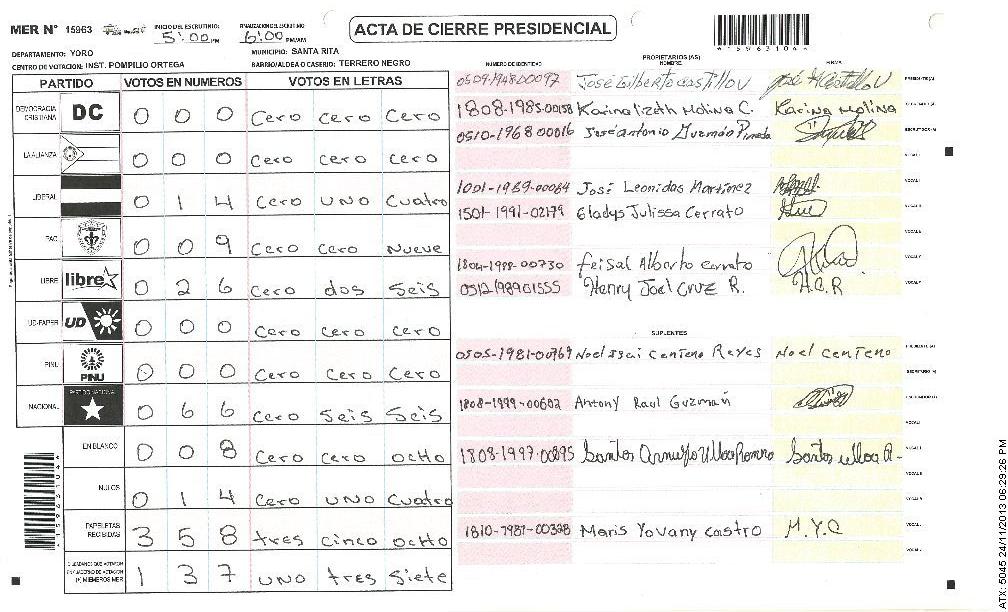 MER N° 15963
INICIO DEL ESCRUTINIO: 5:00 PM
FINALIZACION DEL ESCRUTINIO: 6:00 PM/AM
ACTA DE CIERRE PRESIDENCIAL
DEPARTAMENTO: YORO
MUNICIPIO: SANTA RITA
CENTRO DE VOTACION: INST. POMPILIO ORTEGA
BARRIO/ALDEA O CASERIO: TERRERO NEGRO
PARTIDO VOTOS EN NUMEROS VOTOS EN LETRAS
DEMOCRACIA CRISTIANA DC 0 0 0 Cero Cero Cero
LA ALIANZA 0 0 0 Cero Cero Cero
LIBERAL 0 1 4 Cero UNO Cuatro
PAC 0 0 9 Cero Cero Nueve
LIBRE libre 0 2 6 Cero dos Seis
UD-FAPER UD 0 0 0 Cero Cero Cero
PINU PINU 0 0 0 Cero Cero Cero
NACIONAL PARTIDO NACIONAL 0 6 6 Cero Seis Seis
EN BLANCO 0 0 8 Cero Cero OCHO
NULOS 0 1 4 Cero UNO Cuatro
PAPELETAS RECIBIDAS 3 5 8 tres cinco OCHO
CIUDADANOS QUE VOTARON EN CUADERNO DE VOTACION (+) MIEMBROS MER 1 3 7 UNO tres Siete
PROPIETARIOS (AS)
NUMERO DE IDENTIDAD NOMBRE FIRMA
0509-1948-00097 José Gilberto Castillo V PRESIDENTE(A)
1808-1985-00158 Karina lizeth Molina C. Karina Molina SECRETARIO(A)
0510-1968 00016 José Antonio Guzmán Pineda ESCRUTADOR(A)
VOCAL I
1001-1989-00084 José Leonidas Martinez
1501-1991-02179 Gladys Julissa Cerrato
1804-1998-00730 Feisal Alberto Cerrato
0512198901555 Henry Joel Cruz R. H.C.R
SUPLENTES
0505-1981-00769 Noel Isai Centeno Reyes Noel Centeno PRESIDENTE(A)
SECRETARIO(A)
1808-1999-00602 Antony Raul Guzmán ESCRUTADOR(A)
VOCAL I
1808-1997-00895 Santos Arnulfo Ulloa Romero Santos ulloa A-
1810-1981-00398 Maris Yovany Castro M.Y.C
ATX: 5045 24/11/2013 06:29:26 PM